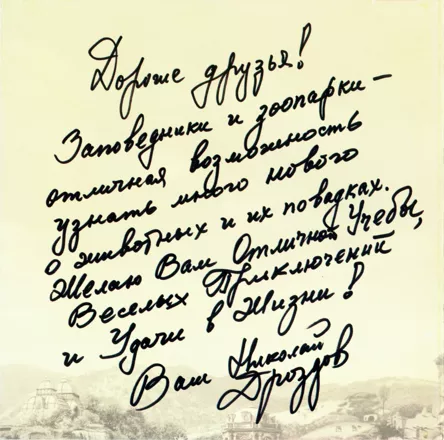 Дорогие друзья!
Заповедники и зоопарки –
отличная возможность
узнать много нового
о животных и их повадках.
Желаю Вам Отличной Учебы,
Веселых Приключений
и Удачи в Жизни!
Ваш Николай
Дроздов